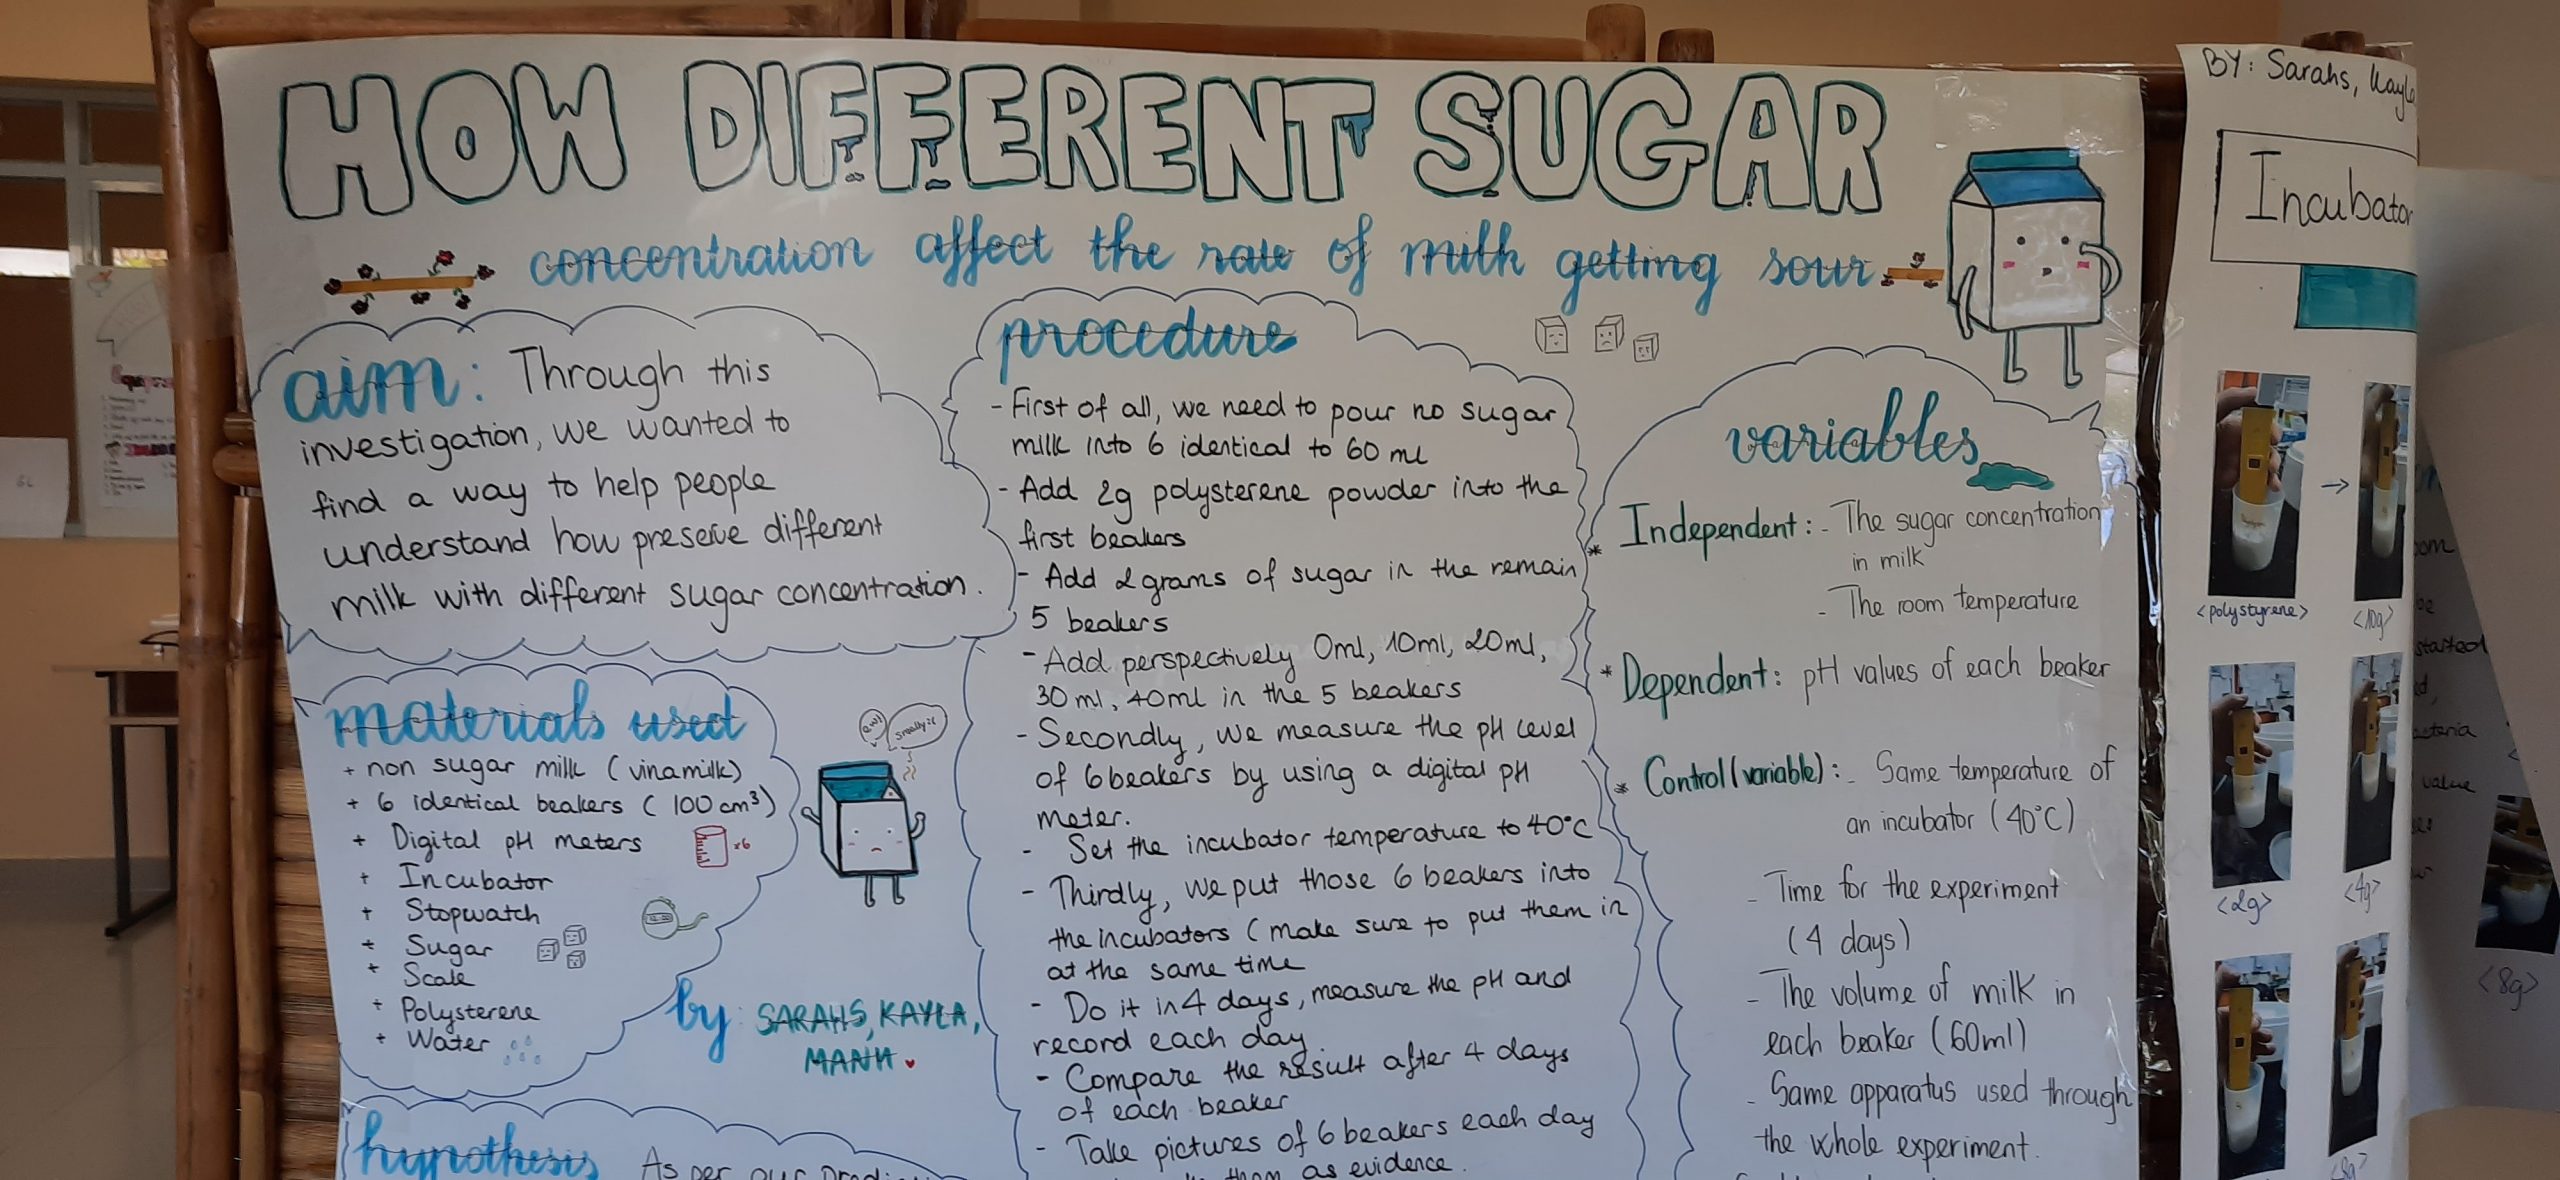 HOW DIFFERENT SUGAR
concentration affect the rate of milk getting sour
aim: Through this
investigation, we wanted to
find a way to help people
understand how preserve different
milk with different sugar concentration.
materials used
+ non sugar milk (vinamilk)
+ 6 identical beakers (100 cm³)
+ Digital pH meters
x6
+ Incubator
+ Stopwatch
+ Sugar
+ Scale
+ Polysterene
+ Water
by: SARAHS, KAYLA,
MANH
hypothesis As per our
procedure
- First of all, we need to pour no sugar
milk into 6 identical to 60 ml
- Add 2g polysterene powder into the
first beakers
- Add 2 grams of sugar in the remain
5 beakers
- Add perspectively 0ml, 10ml, 20ml,
30ml, 40ml in the 5 beakers
- Secondly, we measure the pH level
of 6 beakers by using a digital pH
meter.
- Set the incubator temperature to 40°C
- Thirdly, we put those 6 beakers into
the incubators (make sure to put them in
at the same time
- Do it in 4 days, measure the pH and
record each day
- Compare the result after 4 days
of each beaker
- Take pictures of 6 beakers each day
them as evidence.
variables
* Independent: - The sugar concentration
in milk
- The room temperature
* Dependent: pH values of each beaker
* Control (variable): - Same temperature of
an incubator (40°C)
- Time for the experiment
(4 days)
- The volume of milk in
each beaker (60ml)
- Same apparatus used through
the whole experiment.
BY: Sarahs,
Incubator
<polystyrene>
<10g>
<2g>
<4g>
<8g>
started
value